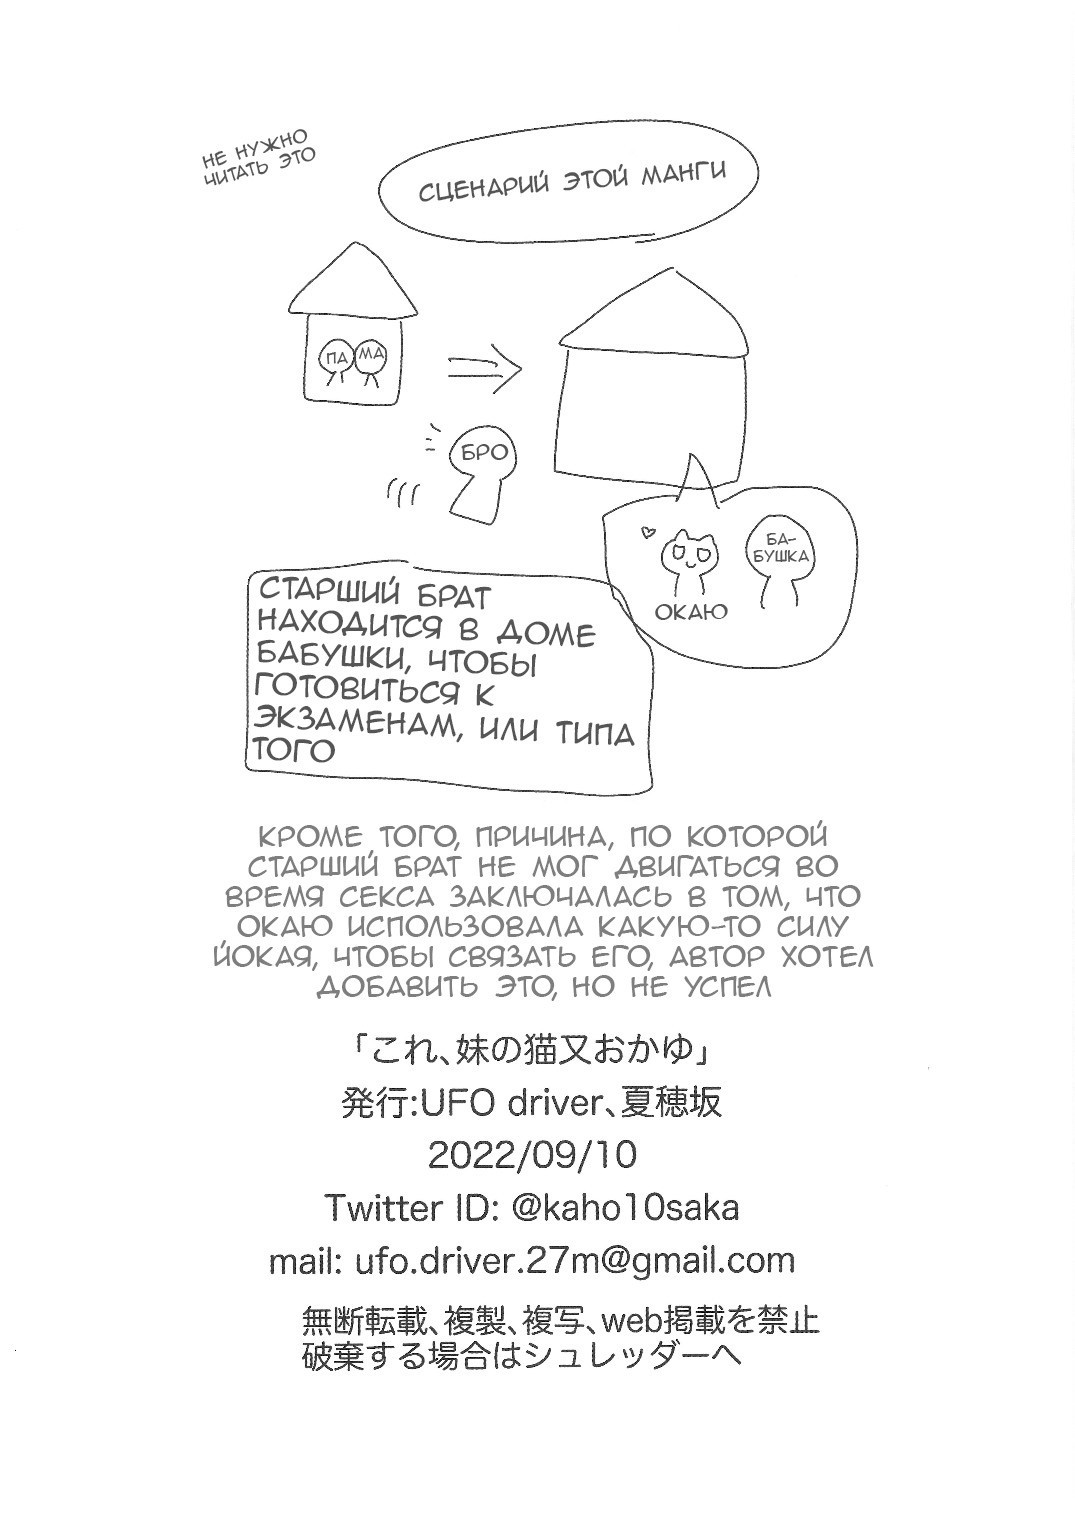 НЕ НУЖНО
ЧИТАТЬ ЭТО
СЦЕНАРИЙ ЭТОЙ МАНГИ
ПА
МА
БРО
БА-
БУШКА
ОКАЮ
СТАРШИЙ БРАТ
НАХОДИТСЯ В ДОМЕ
БАБУШКИ, ЧТОБЫ
ГОТОВИТЬСЯ К
ЭКЗАМЕНАМ, ИЛИ ТИПА
ТОГО
КРОМЕ ТОГО, ПРИЧИНА, ПО КОТОРОЙ
СТАРШИЙ БРАТ НЕ МОГ ДВИГАТЬСЯ ВО
ВРЕМЯ СЕКСА ЗАКЛЮЧАЛАСЬ В ТОМ, ЧТО
ОКАЮ ИСПОЛЬЗОВАЛА КАКУЮ-ТО СИЛУ
ЙОКАЯ, ЧТОБЫ СВЯЗАТЬ ЕГО, АВТОР ХОТЕЛ
ДОБАВИТЬ ЭТО, НО НЕ УСПЕЛ
「これ、妹の猫又おかゆ」
発行:UFO driver、夏穂坂
2022/09/10
Twitter ID: @kaho10saka
mail: ufo.driver.27m@gmail.com
無断転載、複製、複写、web掲載を禁止
破棄する場合はシュレッダーへ